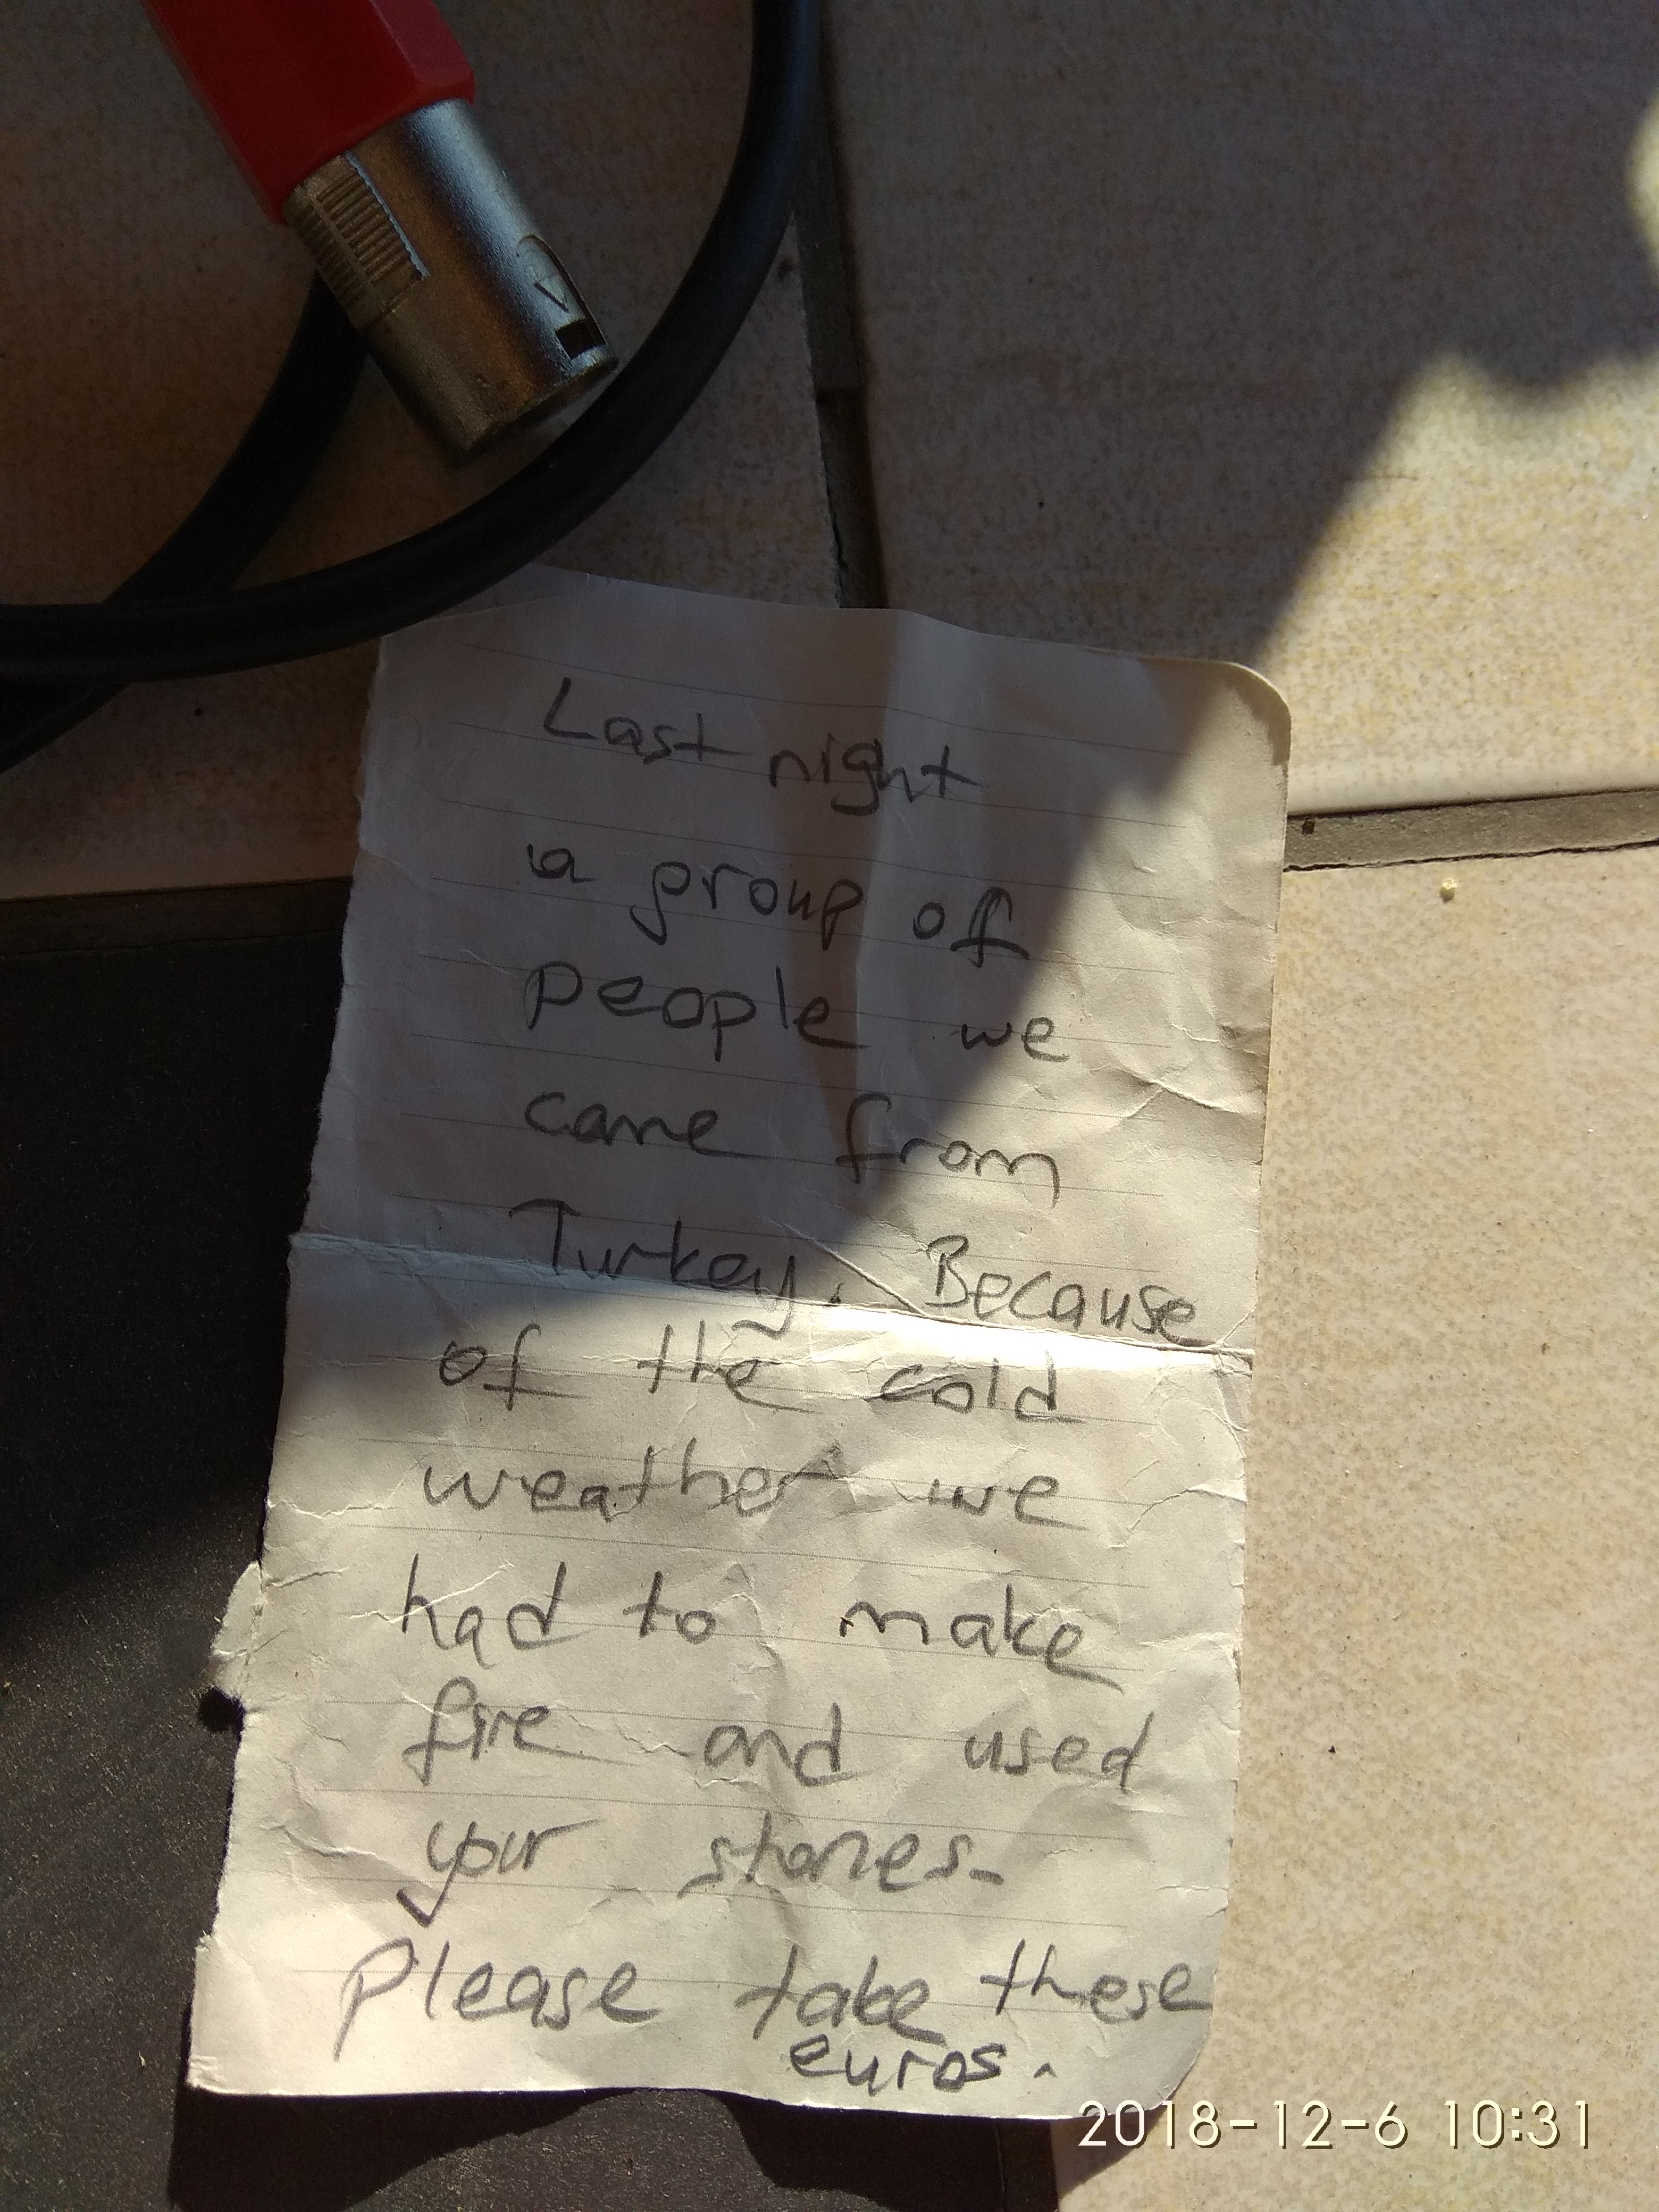 Last night
a group of
people we
came from
Turkey. Because
of the cold
weather we
had to make
fire and used
your stones-
Please take these
euros.
2018-12-6 10:31